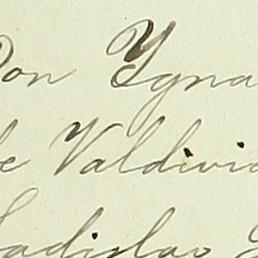 Don Ygna
de Valdivia
Ladislao